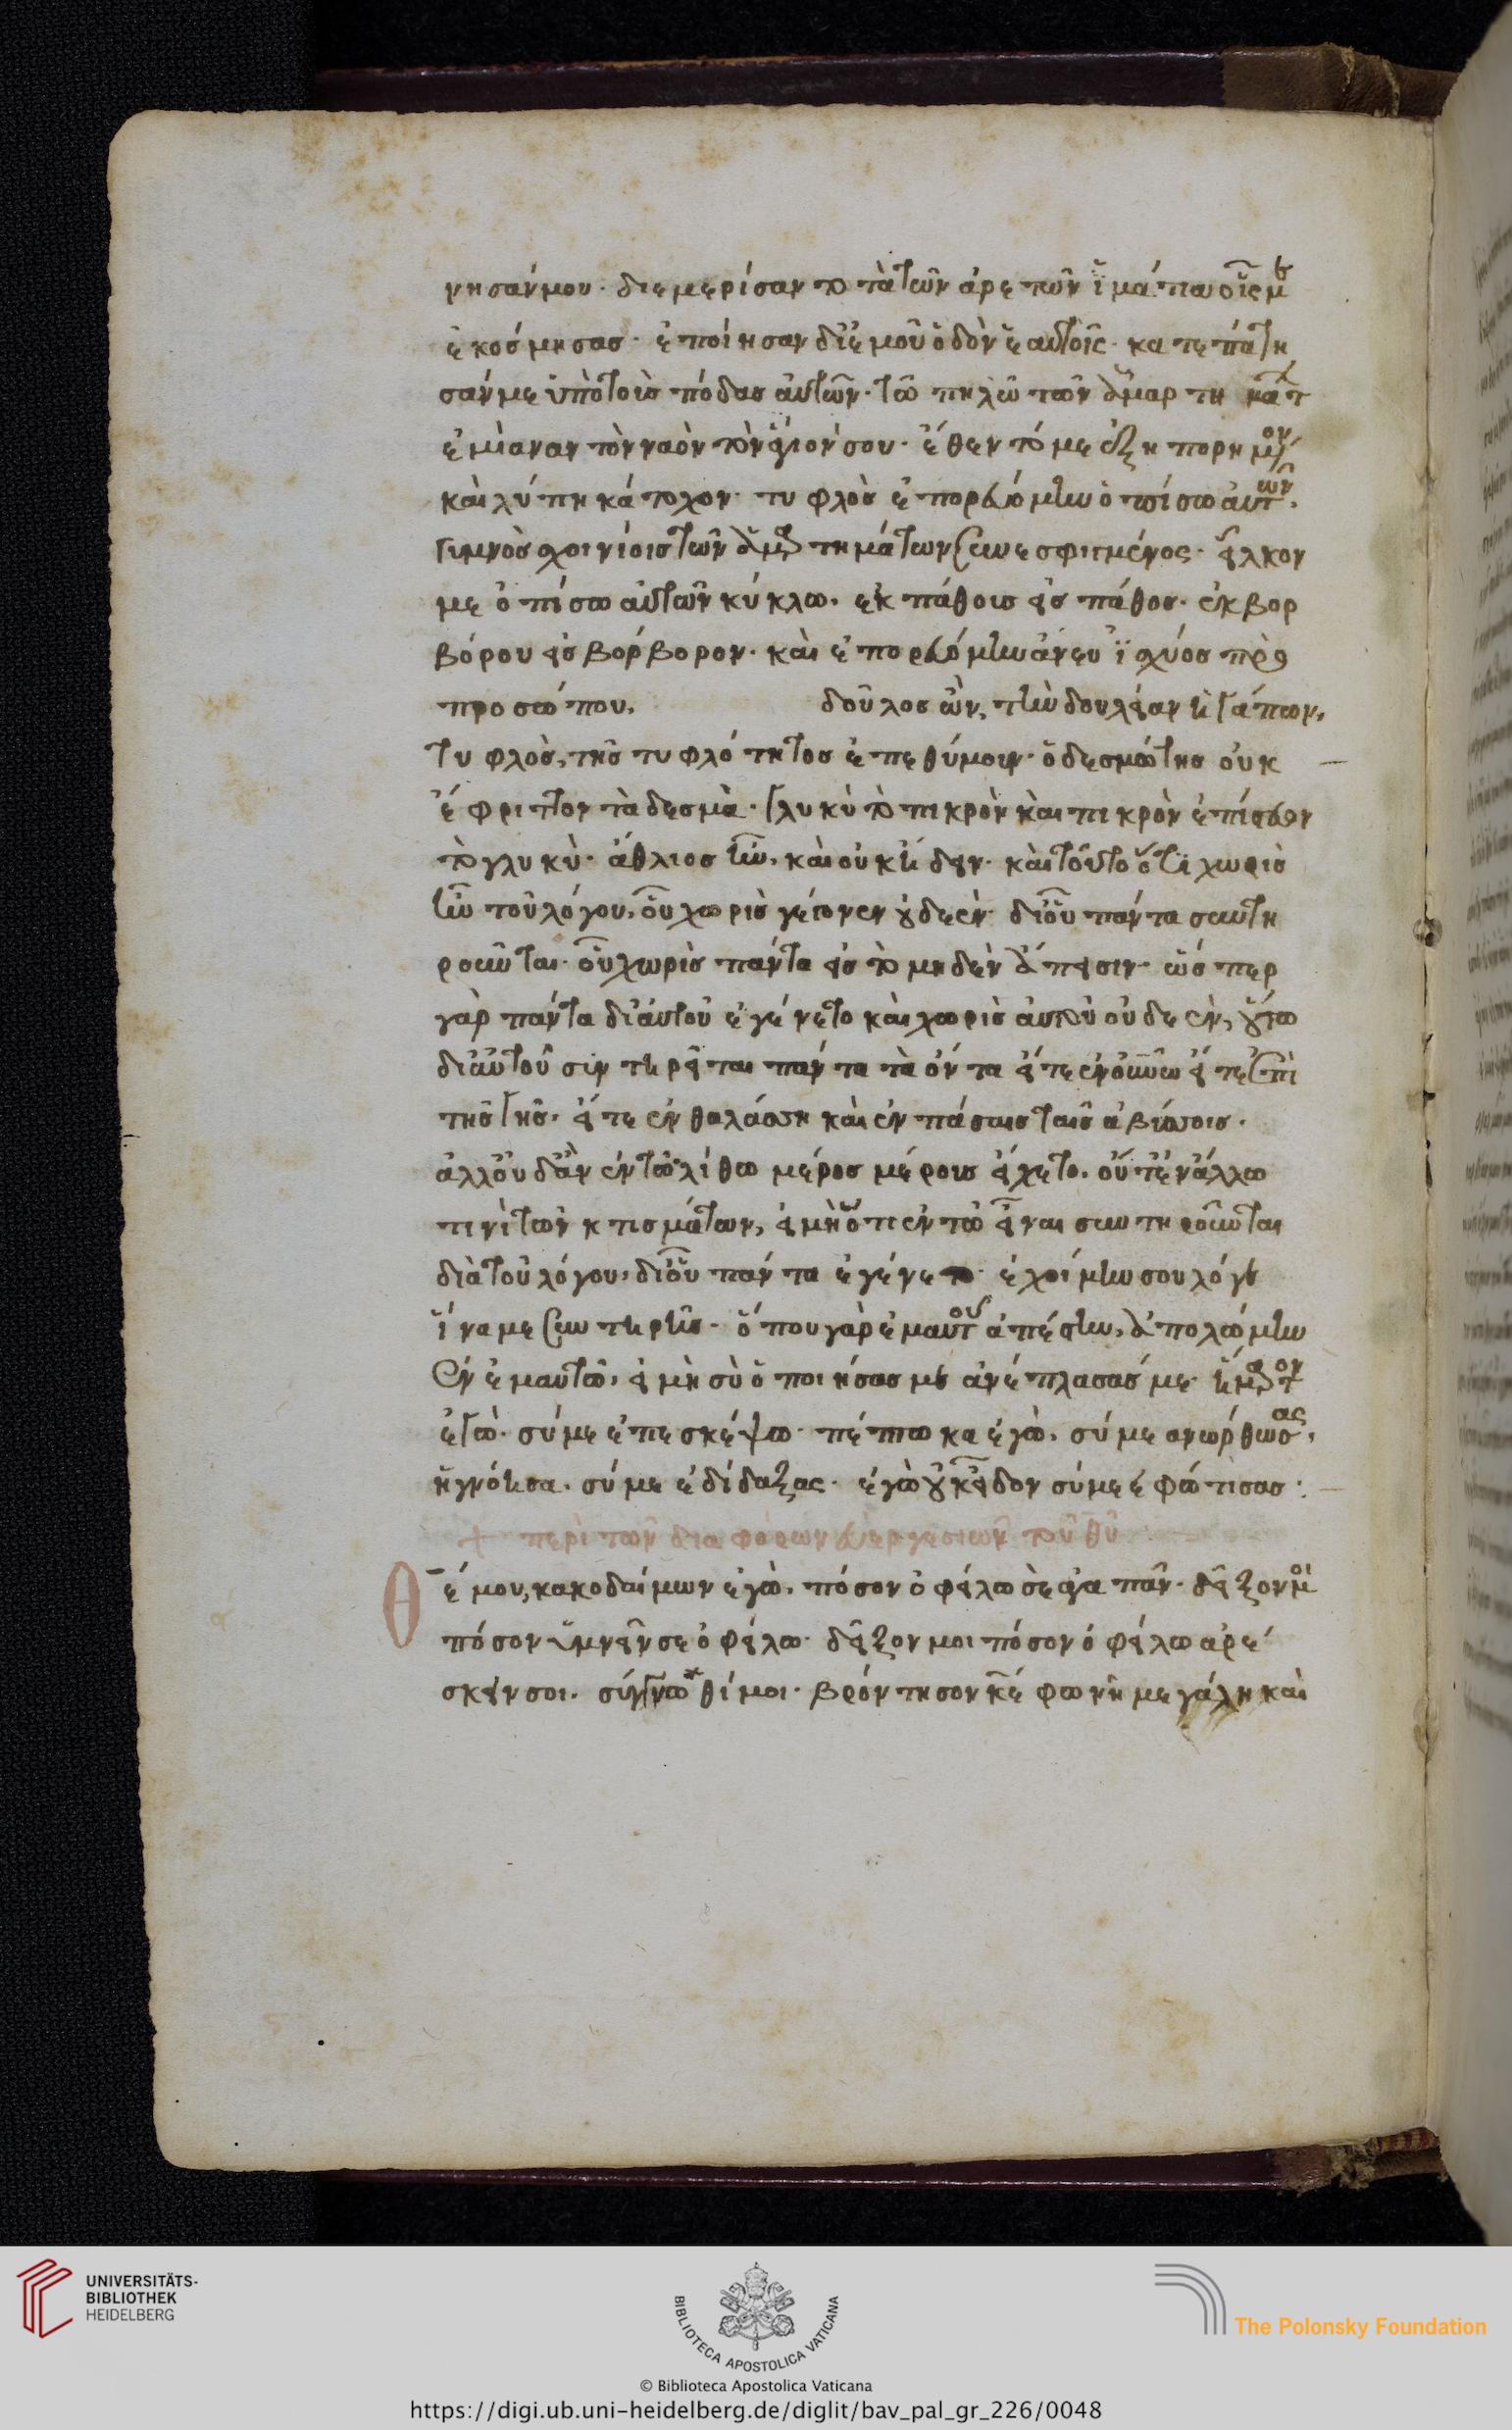 νησάν μου· διεμερίσαντο τὰ τῶν ἀρετῶν ἱμάτια οἷς με
ἐκόσμησας· ἐποίησαν δι' ἐμοῦ ὁδὸν ἑαυτοῖς· κατεπάτη
σάν με ὑπὸ τοὺς πόδας αὐτῶν· τῶ πηλῶ τῶν ἁμαρτημάτ
ἐμίαναν τὸν ναὸν τὸν ἅγιόν σου· ἔθεντό με ἐξηπορημένον
καὶ λύπη κάτοχον· τυφλὸς ἐπορευόμην ὀπίσω αὐτῶν.
γυμνὸς σχοινίοις τῶν ἁμαρτημάτων συνεσφιγμένος· εἷλκον
με ὀπίσω αὐτῶν κύκλω. ἐκ πάθους εἰς πάθος· ἐκ βορ
βόρου εἰς βόρβορον· καὶ ἐπορευόμην ἄνευ ἰσχύος πρὸ
προσώπου. δοῦλος ὢν, τὴν δουλείαν ἠγάπων.
τυφλὸς, τῆς τυφλότητος ἐπεθύμουν· ὁ δεσμώτης οὐκ
ἔφριττον τὰ δεσμὰ· γλυκὺ τὸ πικρὸν καὶ πικρὸν ἐπίστευον
τὸ γλυκὺ· ἄθλιος ἤμην. καὶ οὐκ ἤδειν· καὶ τοῦτο ὅτι χωρὶς
ἤμην τοῦ λόγου, οὗ χωρὶς γέγονεν οὐδεέν· δι' οὗ πάντα συντη
ροῦνται· οὗ χωρὶς πάντα εἰς τὸ μηδὲν ἄπεισιν· ὥσπερ
γὰρ πάντα δι' αὐτοῦ ἐγένετο καὶ χωρὶς αὐτοῦ οὐδεέν, οὕτω
δι' αὐτοῦ συντηρεῖται πάντα τὰ ὄντα εἴτε ἐν οὐνῶ εἴτε ἐπὶ
τῆς γῆς. εἴτε ἐν θαλάσση καὶ ἐν πάσαις ταῖς ἀβύσσοις.
ἀλλ' οὐδ' ἂν ἐν τῶ λίθω μέρος μέρους εἴχετο. οὔτ' ἐν ἄλλω
τινὶ τῶν κτισμάτων, εἰ μὴ ὅτι ἐν τῶ εἶναι συντηροῦνται
διὰ τοῦ λόγου, δι' οὗ πάντα ἐγένετο· ἐχοίμην σου λόγε
ἵνα με συντηρῆς· ὅπου γὰρ ἐμαυτοῦ ἀπέστην, ἀπολώμην
ἐν ἐμαυτῶ, εἰ μὴ σὺ ὁ ποιήσας με ἀνέπλασάς με· ἥμαρτον
ἐγὼ· σύ με ἐπεσκέψω· πέπτωκα ἐγὼ. σύ με ἀνώρθωσας.
ἠγνόησα. σύ με ἐδίδαξας· ἐγὼ οὐκ εἶδον σύ με ἐφώτισας:
+ περὶ τῶν διαφόρων εὐεργεσιῶν τοῦ θῦ
Θέ μου, κακοδαίμων ἐγὼ. πόσον ὀφείλω σὲ ἀγαπᾶν· δεῖξον μοι
πόσον ὑμνεῖν σε ὀφείλω· δεῖξον μοι πόσον ὀφείλω ἀρέ
σκειν σοι. σύγγνωθί μοι· βρόντησον κέ φωνῆ μεγάλη καὶ
UNIVERSITÄTS-
BIBLIOTHEK
HEIDELBERG
BIBLIOTECA APOSTOLICA VATICANA
The Polonsky Foundation
© Biblioteca Apostolica Vaticana
https://digi.ub.uni-heidelberg.de/diglit/bav_pal_gr_226/0048